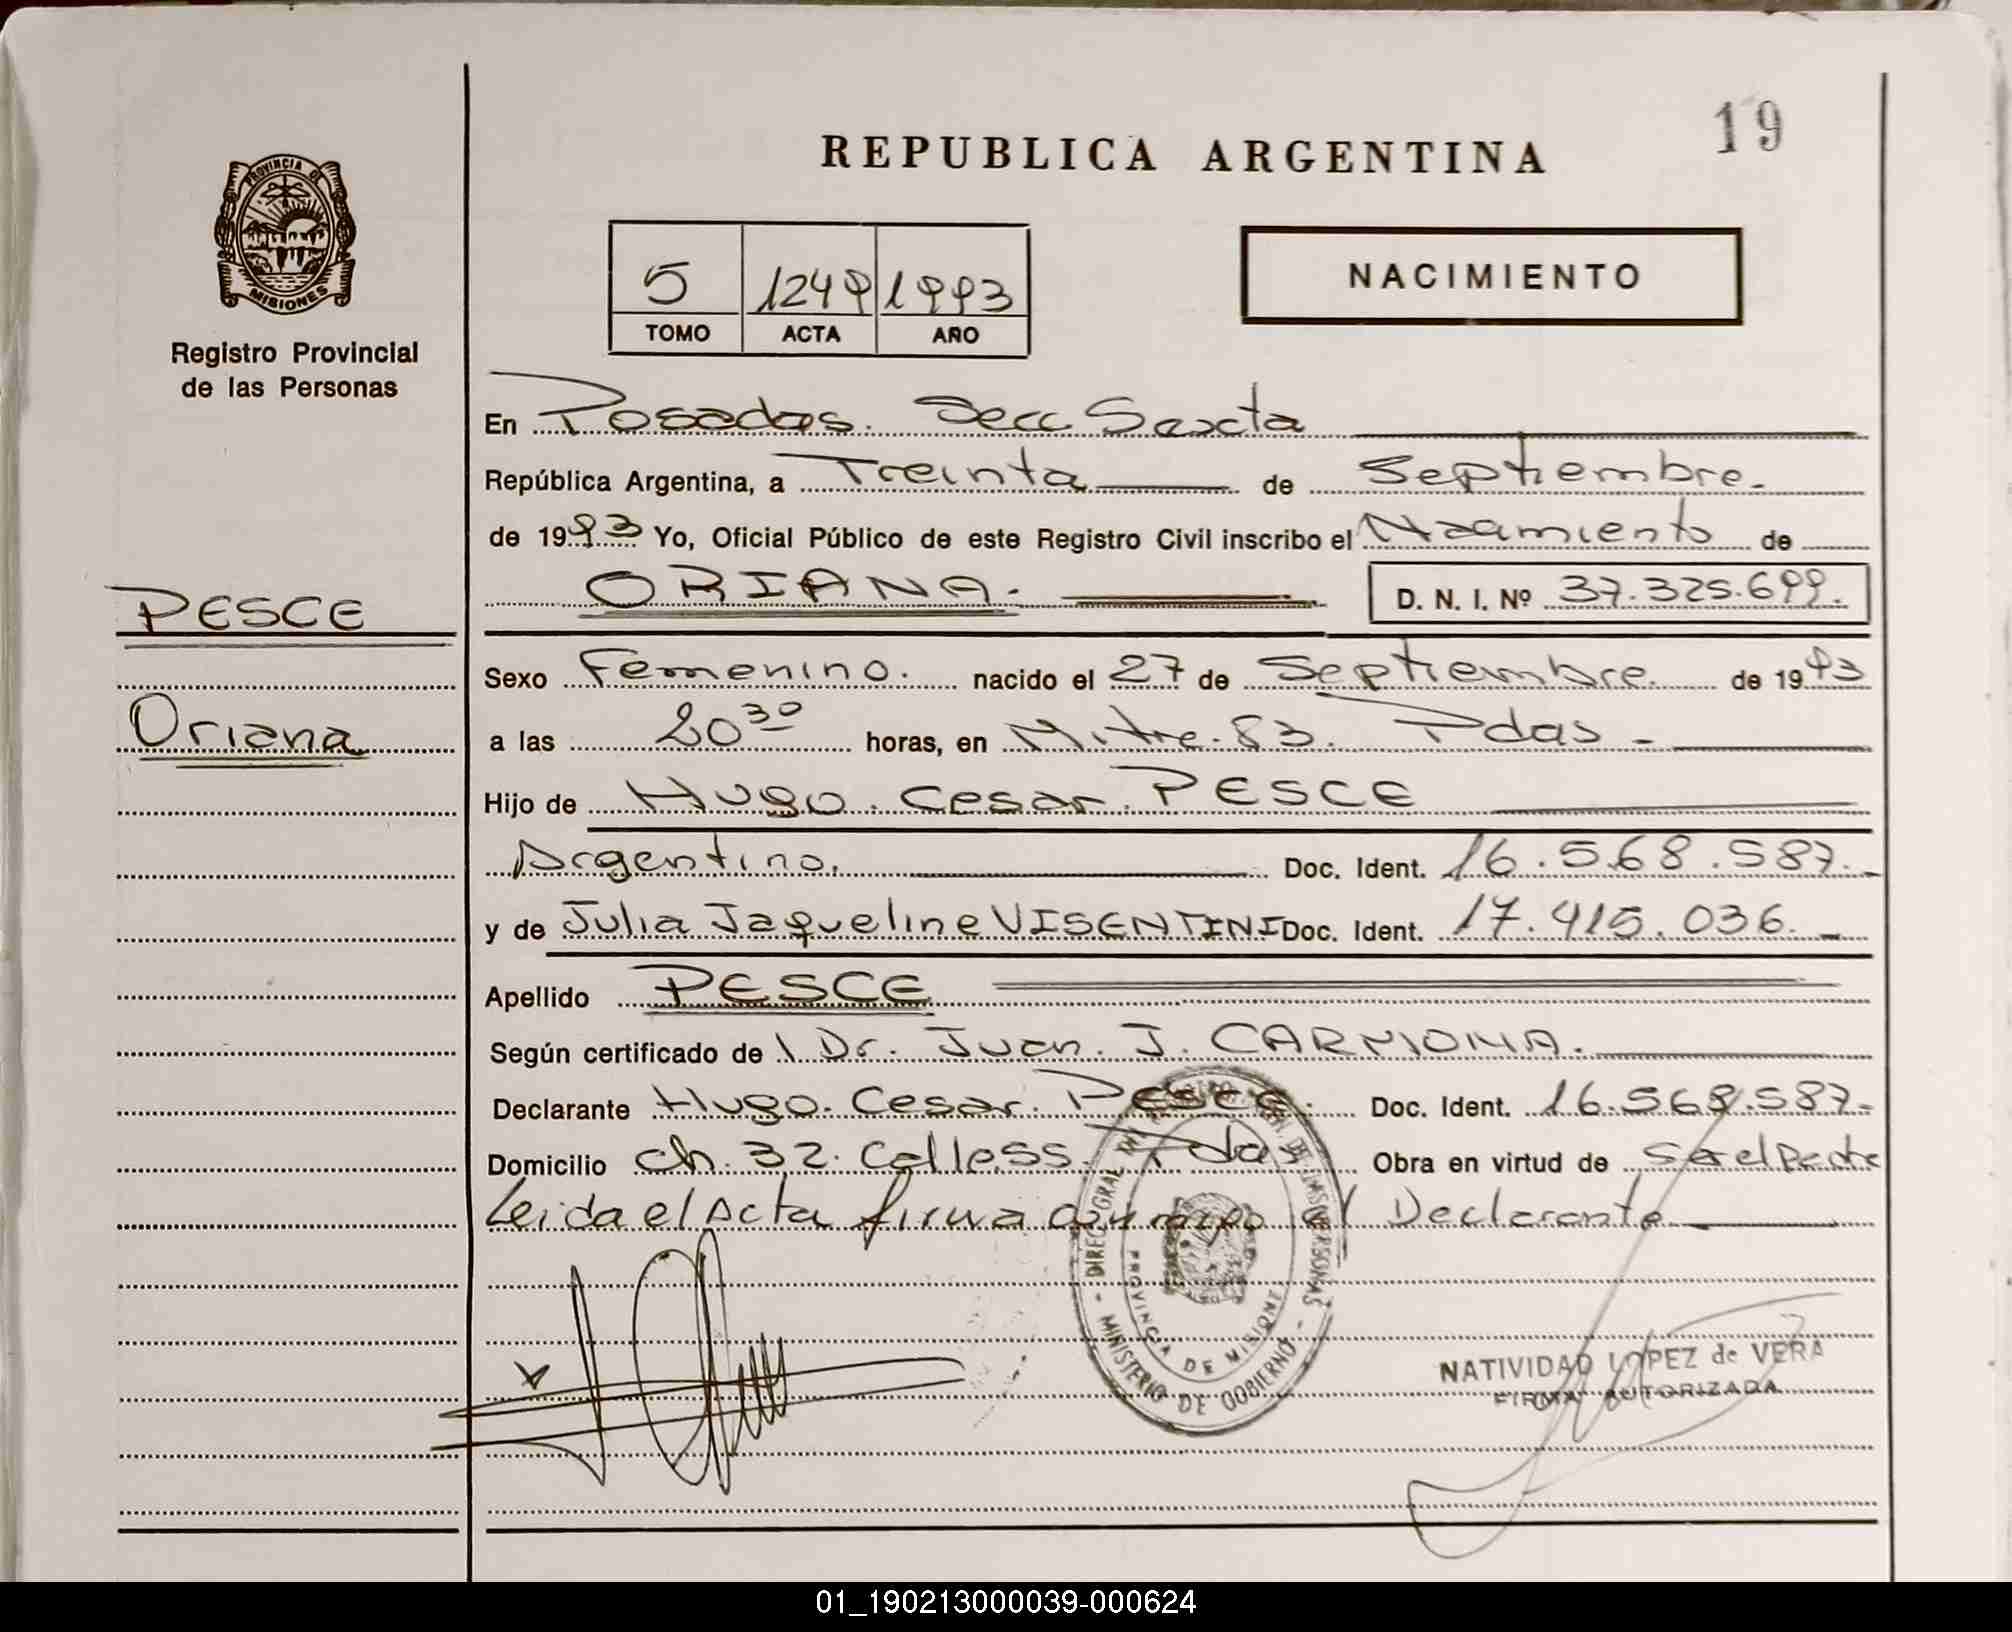 19
REPUBLICA ARGENTINA
PROVINCIA DE
MISIONES
Registro Provincial
de las Personas
5 1249 1993
TOMO ACTA AÑO
NACIMIENTO
En Posadas. Secc Sexta
República Argentina, a Treinta de Septiembre.
de 1993 Yo, Oficial Público de este Registro Civil inscribo el Nacimiento de
PESCE
ORIANA. D. N. I. Nº 37.325.699.
Sexo Femenino. nacido el 27 de Septiembre. de 1993
Oriana
a las 20 30 horas, en Mitre. 83. Pdas -
Hijo de Hugo. Cesar. PESCE
Argentino. Doc. Ident. 16.568.587.-
y de Julia Jaqueline VISENTINI Doc. Ident. 17.415.036. -
Apellido PESCE
Según certificado de Dr. Juan. J. CARMONA.
Declarante Hugo. Cesar. Pesce. Doc. Ident. 16.568.587.-
Domicilio ch. 32. Calle 55. Pdas Obra en virtud de
Leida el Acta firma conmigo el Declarante
MINISTERIO DE GOBIERNO
PROVINCIA DE MISIONES
NATIVIDAD LOPEZ de VERA
FIRMA AUTORIZADA
01_190213000039-000624